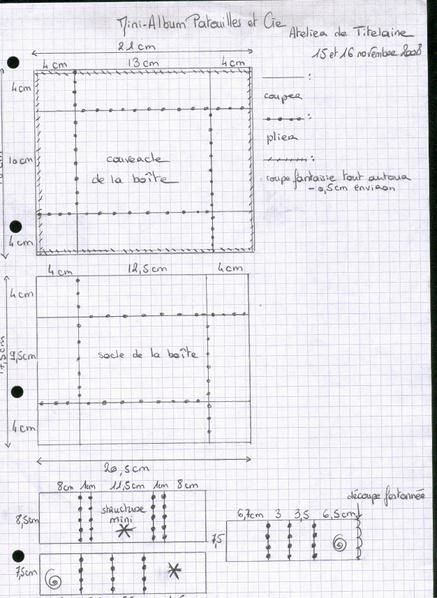 Mini-Album Patouilles et Cie
Atelier de Titelaine
15 et 16 novembre 2008
21 cm
4 cm 13 cm 4 cm
4 cm
10 cm
4 cm
couvercle
de la boîte
:
couper
:
plier
:
coupe fantaisie tout autour
- 0,5cm environ
4 cm 12,5 cm 4 cm
4 cm
9,5cm
17,5cm
4 cm
socle de la boîte
20,5cm
8cm 1cm 11,5cm 1cm 8cm
8,5cm
structure
mini
7,5cm
découpe festonnée
6,7cm 3 3,5 6,5cm
7,5